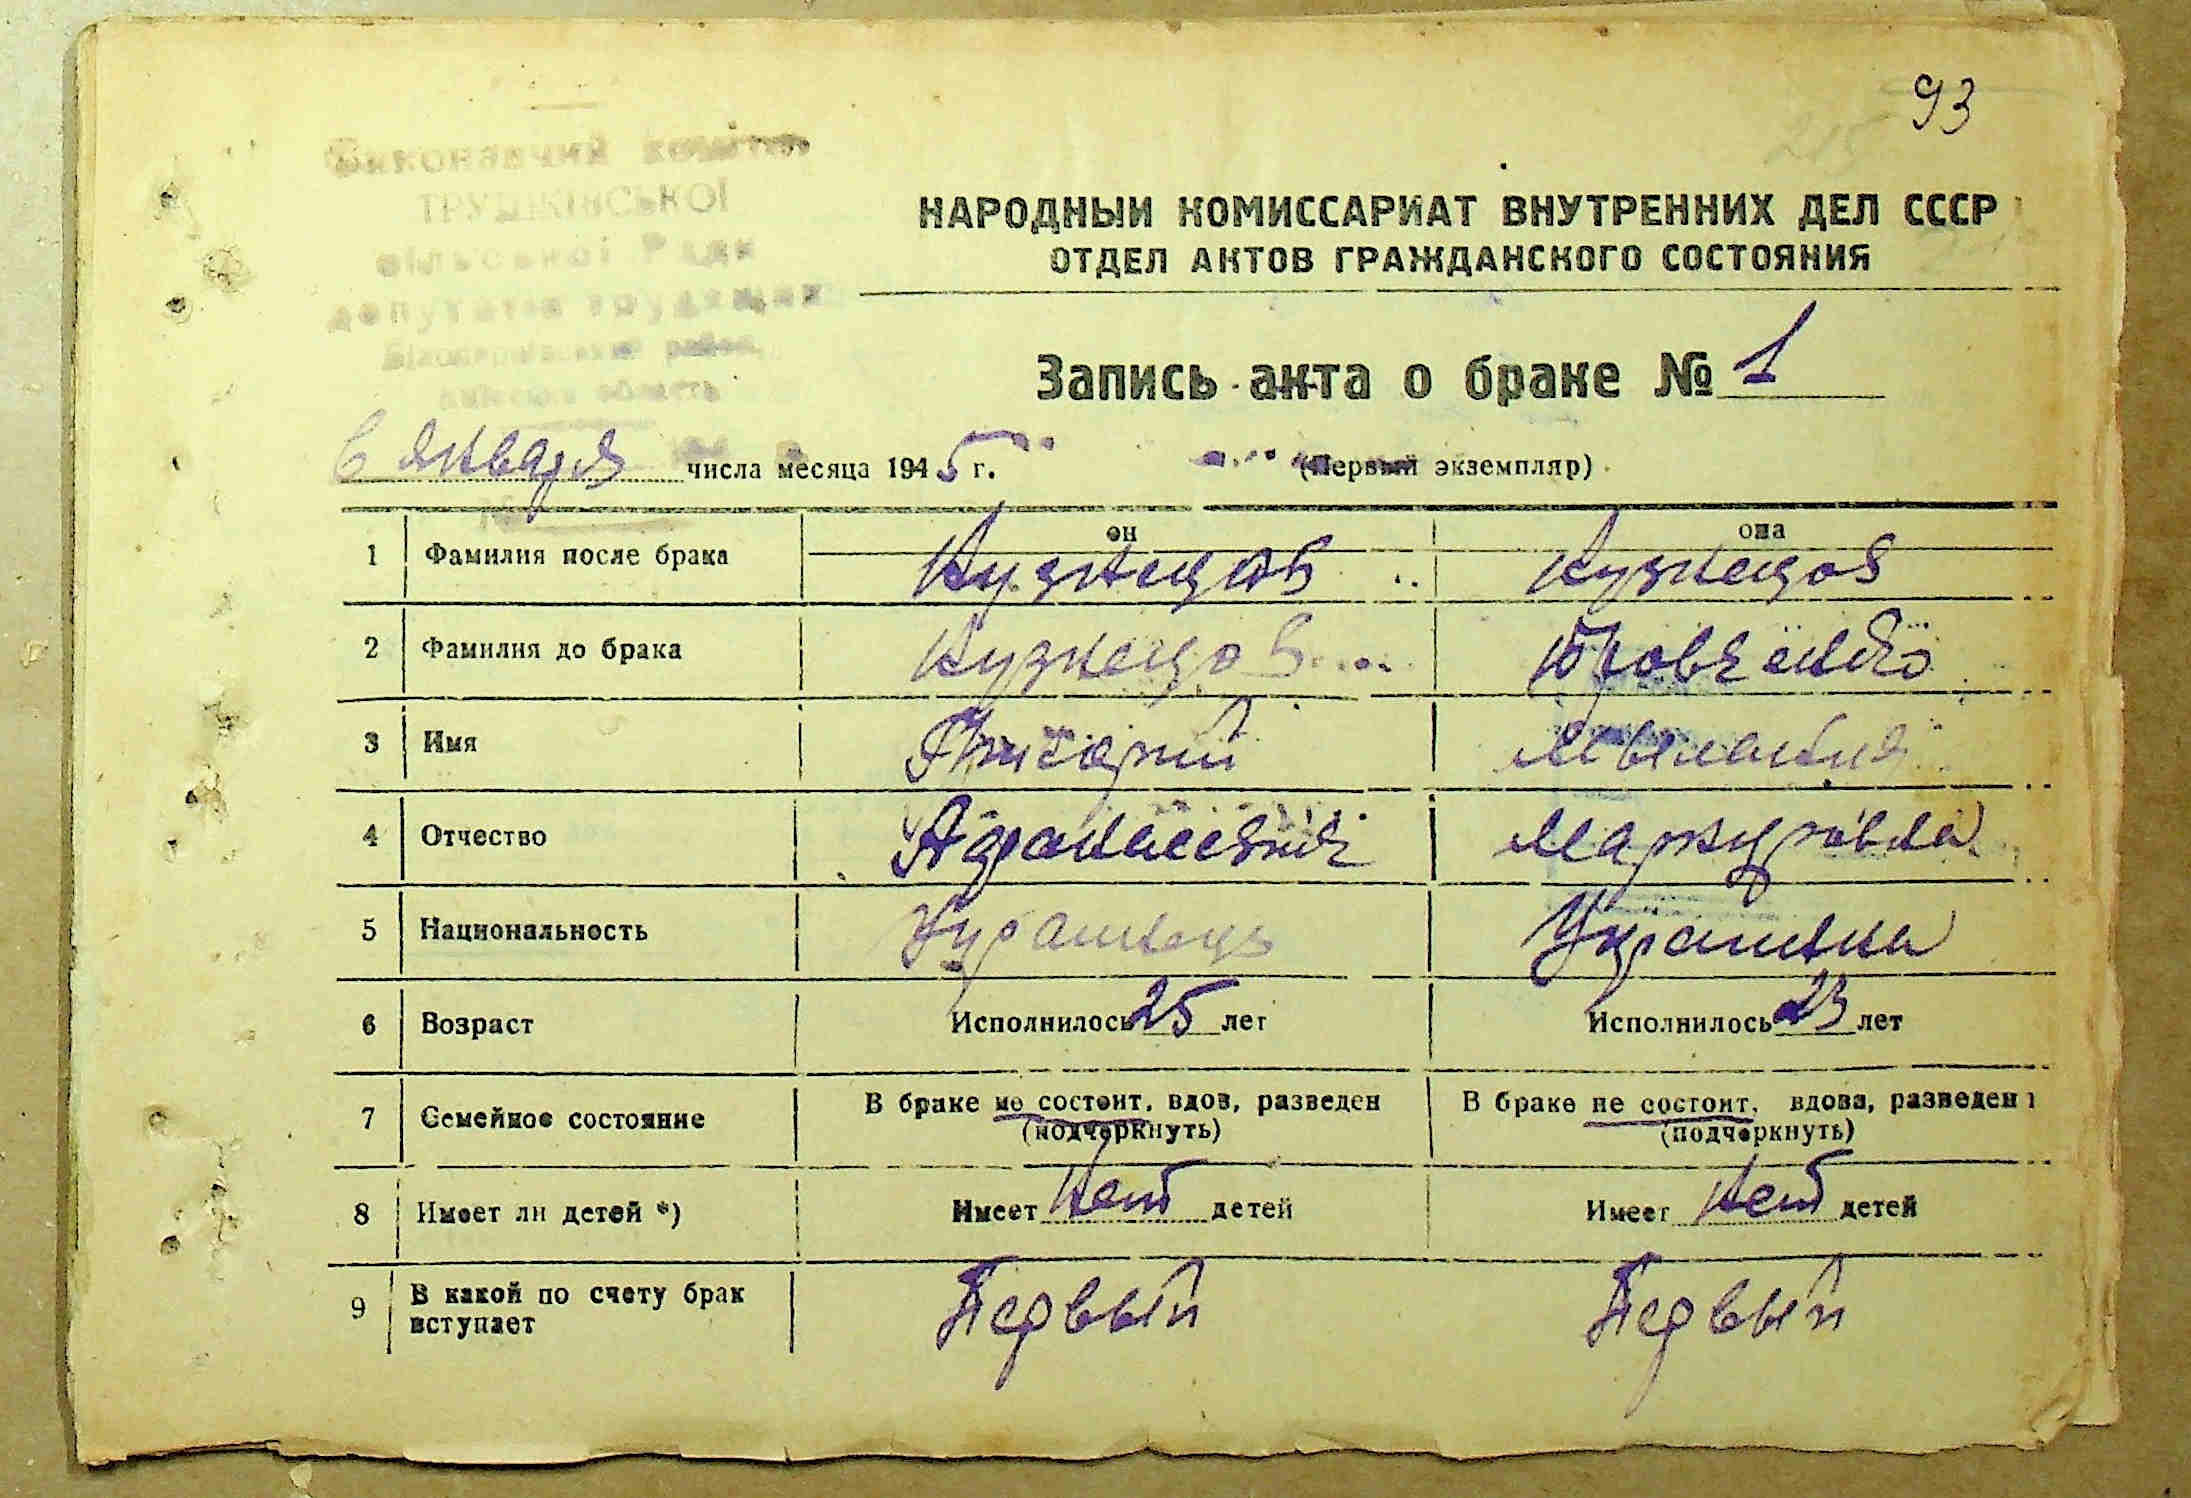 93
215
Виконавчий комітет
ТРУШКІВСЬКОЇ
сільської Ради
депутатів трудящих
Білоцерківський район,
Київська область
НАРОДНЫЙ КОМИССАРИАТ ВНУТРЕННИХ ДЕЛ СССР
ОТДЕЛ АКТОВ ГРАЖДАНСКОГО СОСТОЯНИЯ
Запись акта о браке № 1
6 января числа месяца 1945 г. (Первый экземпляр)
он она
1 Фамилия после брака Кузнецов Кузнецов
2 Фамилия до брака Кузнецов
3 Имя Григорий
4 Отчество Афанасевич Маркурівна
5 Национальность Украинець Украинка
6 Возраст Исполнилось 25 лет Исполнилось 23 лет
7 Семейное состояние В браке не состоит, вдов, разведен В браке не состоит, вдова, разведен
(подчеркнуть) (подчеркнуть)
8 Имеет ли детей *) Имеет нет детей Имеет нет детей
9 В какой по счету брак Первый Первый
вступает